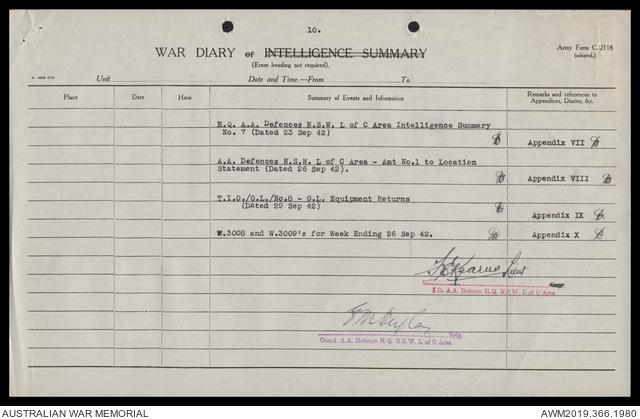 10.
WAR DIARY or INTELLIGENCE SUMMARY
(Erase heading not required).
Army Form C.2118
(adapted.)
Unit
Date and Time.—From To
Place Date Hour Summary of Events and Information Remarks and references to Appendices, Diaries, &c.
H.Q. A.A. Defences N.S.W. L of C Area Intelligence Summary
No. 7 (Dated 23 Sep 42) Appendix VII
A.A. Defences N.S.W. L of C Area - Amt No.1 to Location
Statement (Dated 26 Sep 42). Appendix VIII
T.I.O./G.L./No.8 - G.L. Equipment Returns
(Dated 29 Sep 42) Appendix IX
W.3008 and W.3009's for Week Ending 26 Sep 42. Appendix X
Lieut
A.A. Defence H.Q. N.S.W. L of C Area
Brig.
Comd. A.A. Defence H.Q. N.S.W. L of C Area
AUSTRALIAN WAR MEMORIAL
AWM2019.366.1980